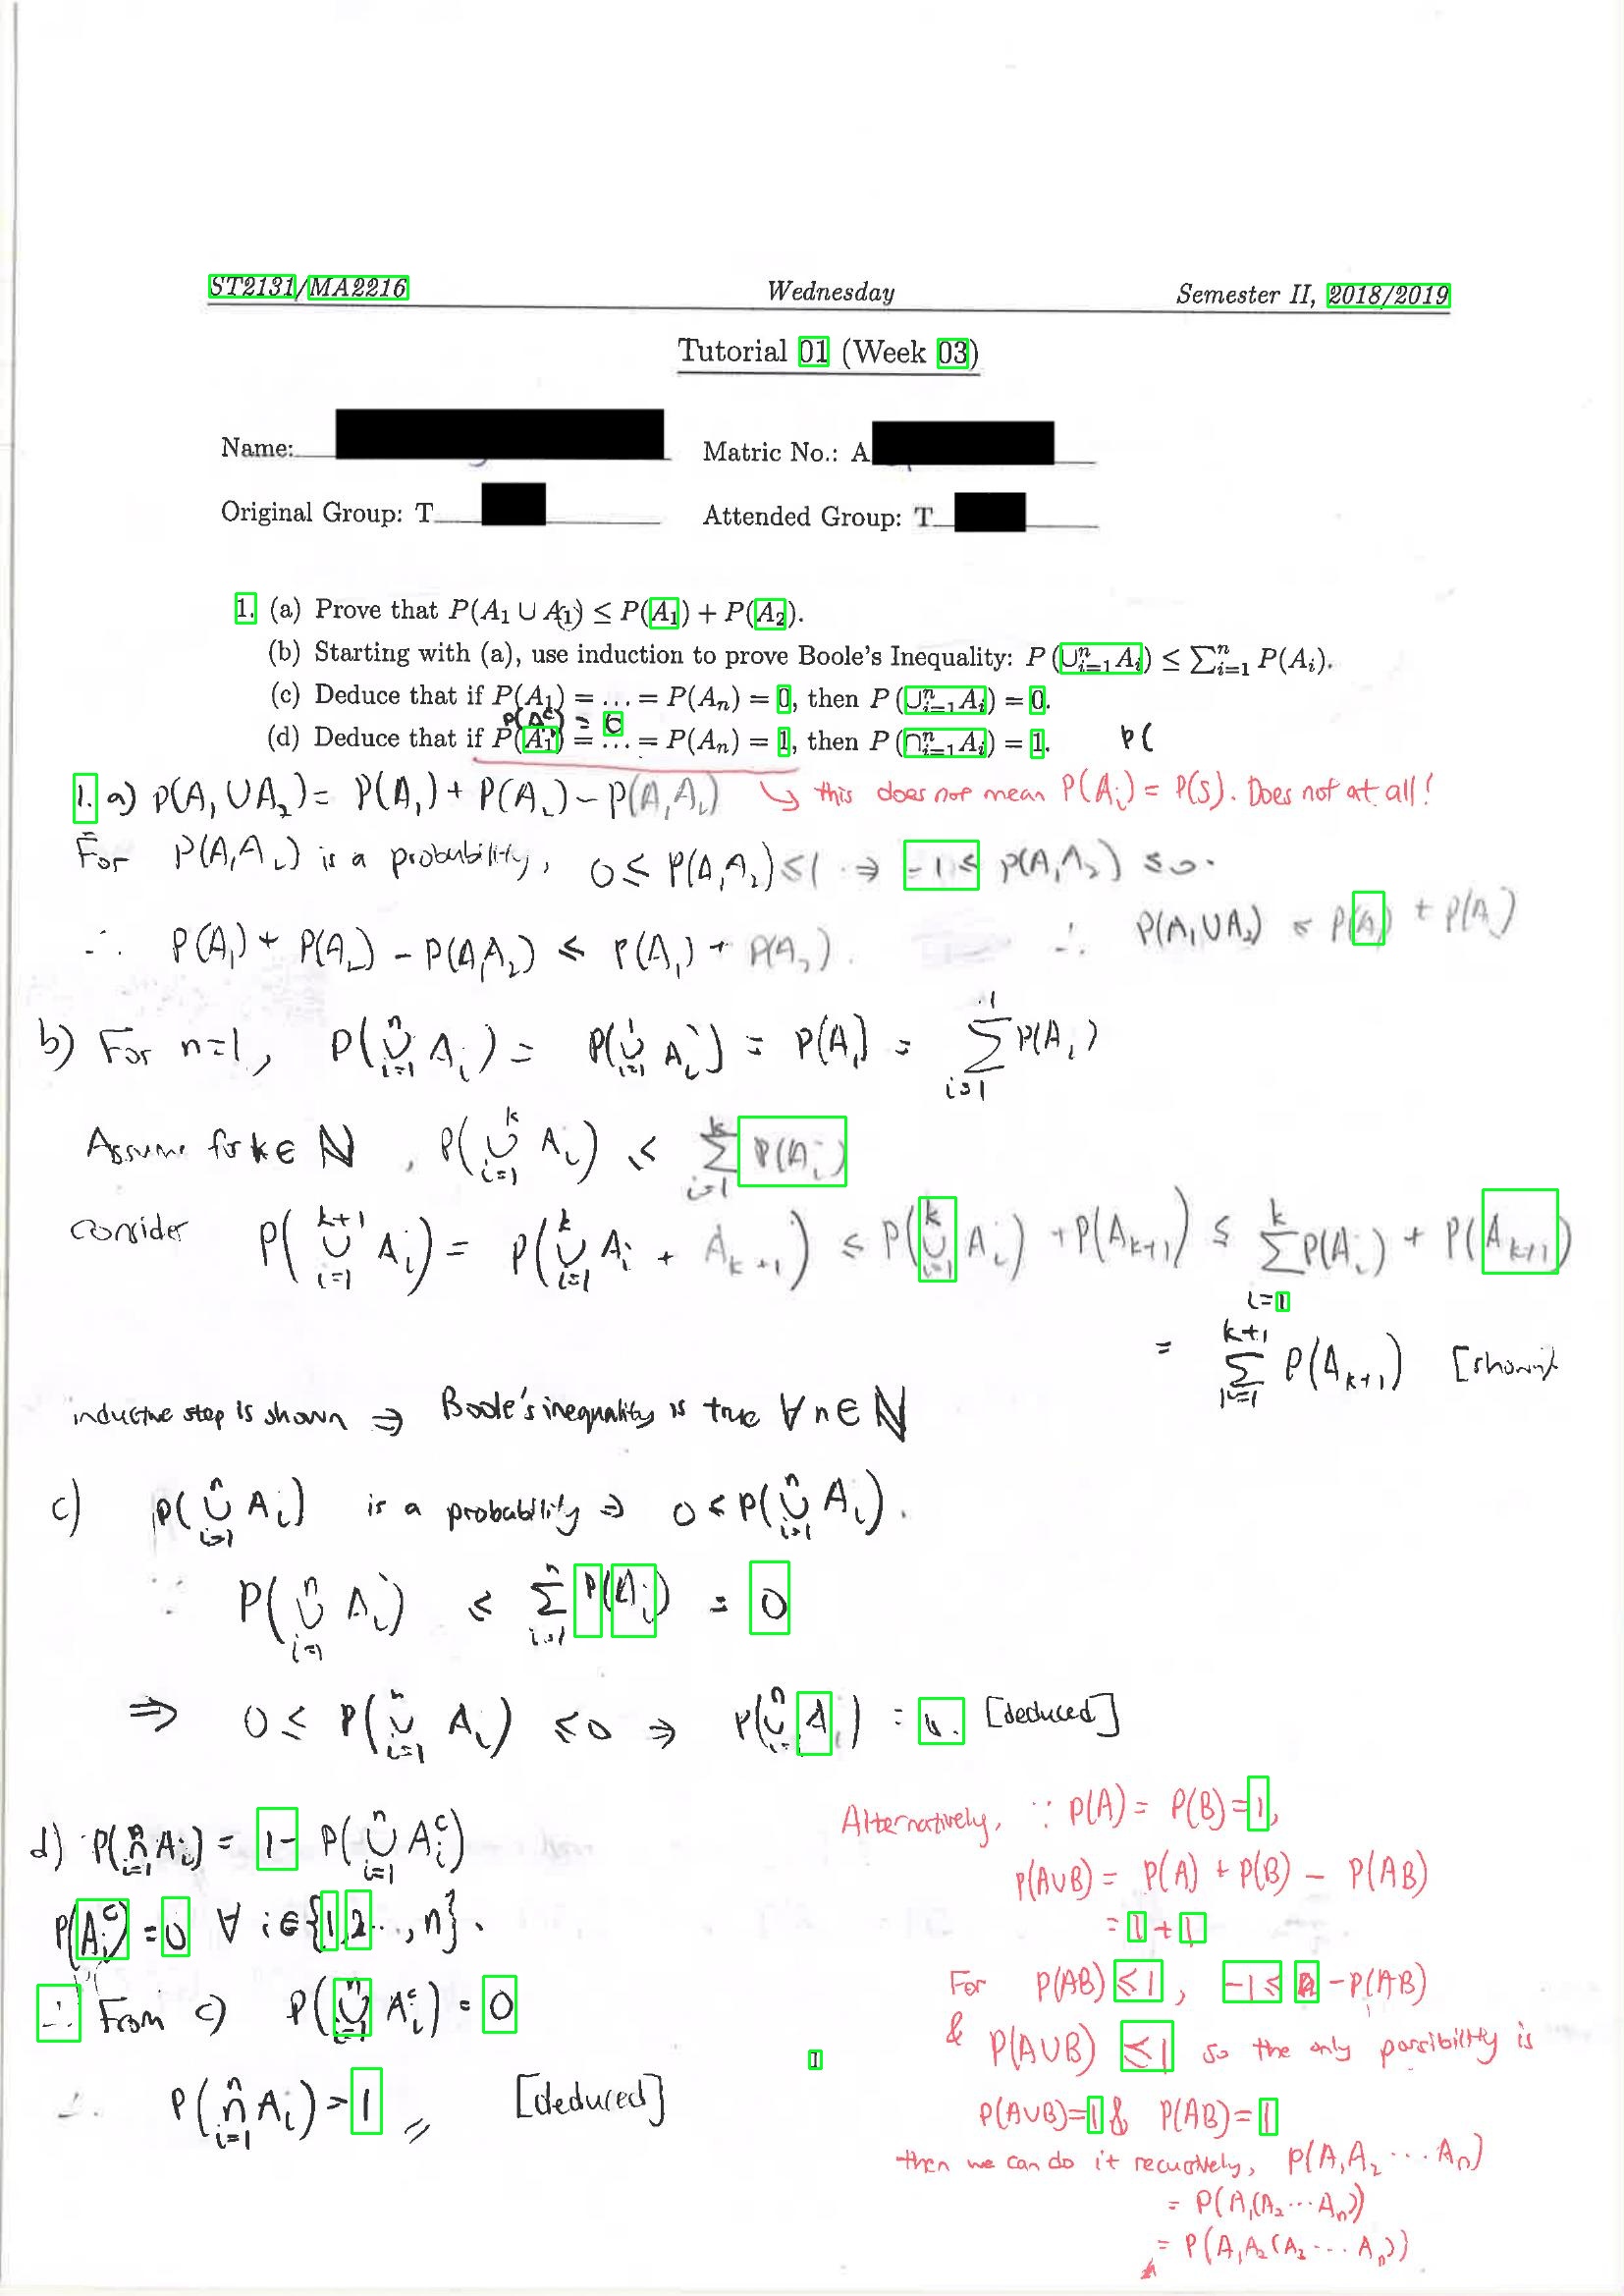 ST2131/MA2216 Wednesday Semester II, 2018/2019
Tutorial 01 (Week 03)
Name: Matric No.: A
Original Group: T Attended Group: T
1. (a) Prove that P(A₁ ∪ A₁) ≤ P(A₁) + P(A₂).
(b) Starting with (a), use induction to prove Boole's Inequality: P (∪ⁿᵢ₌₁Aᵢ) ≤ ∑ⁿᵢ₌₁ P(Aᵢ).
(c) Deduce that if P(A₁) = … = P(Aₙ) = 0, then P (∪ⁿᵢ₌₁Aᵢ) = 0.
P(Aᶜ) = 0
(d) Deduce that if P(A₁) = … = P(Aₙ) = 1, then P (∩ⁿᵢ₌₁Aᵢ) = 1. P(
1. a) P(A₁∪A₂) = P(A₁) + P(A₂) − P(A₁A₂) ↳ this does not mean P(Aᵢ) = P(S). Does not at all!
For P(A₁A₂) is a probability, 0 ≤ P(A₁A₂) ≤ 1 ⇒ −1 ≤ P(A₁A₂) ≤ 0.
∴ P(A₁) + P(A₂) − P(A₁A₂) ≤ P(A₁) + P(A₂). ∴ P(A₁∪A₂) ≤ P(A₁) + P(A₂)
b) For n=1, P(∪ⁿᵢ₌₁ Aᵢ) = P(∪¹ᵢ₌₁ Aᵢ) = P(A₁) = ∑¹ᵢ₌₁ P(Aᵢ)
Assume for k ∈ ℕ, P(∪ᵏᵢ₌₁ Aᵢ) ≤ ∑ᵏᵢ₌₁ P(Aᵢ)
consider P(∪ᵏ⁺¹ᵢ₌₁ Aᵢ) = P(∪ᵏᵢ₌₁ Aᵢ + Aₖ₊₁) ≤ P(∪ᵏᵢ₌₁ Aᵢ) + P(Aₖ₊₁) ≤ ∑ᵏᵢ₌₁ P(Aᵢ) + P(Aₖ₊₁)
= ∑ᵏ⁺¹ᵢ₌₁ P(Aₖ₊₁) [shown]
inductive step is shown ⇒ Boole's inequality is true ∀ n ∈ ℕ
c) P(∪ⁿᵢ₌₁ Aᵢ) is a probability ⇒ 0 ≤ P(∪ⁿᵢ₌₁ Aᵢ).
∵ P(∪ⁿᵢ₌₁ Aᵢ) ≤ ∑ⁿᵢ₌₁ P(Aᵢ) = 0
⇒ 0 ≤ P(∪ⁿᵢ₌₁ Aᵢ) ≤ 0 ⇒ P(∪ⁿᵢ₌₁ Aᵢ) = 0. [deduced]
d) P(∩ⁿᵢ₌₁ Aᵢ) = 1 − P(∪ⁿᵢ₌₁ Aᵢᶜ)
P(Aᵢᶜ) = 0 ∀ i ∈ {1,2…,n}.
∴ From c) P(∪ⁿᵢ₌₁ Aᵢᶜ) = 0
∴ P(∩ⁿᵢ₌₁ Aᵢ) = 1 [deduced]
Alternatively, ∵ P(A) = P(B) = 1,
P(A∪B) = P(A) + P(B) − P(AB)
= 1 + 1
For P(AB) ≤ 1, −1 ≤ −P(AB)
& P(A∪B) ≤ 1 so the only possibility is
P(A∪B) = 1 & P(AB) = 1
then we can do it recursively, P(A₁A₂…Aₙ)
= P(A₁(A₂…Aₙ))
= P(A₁A₂(A₃…Aₙ))
1